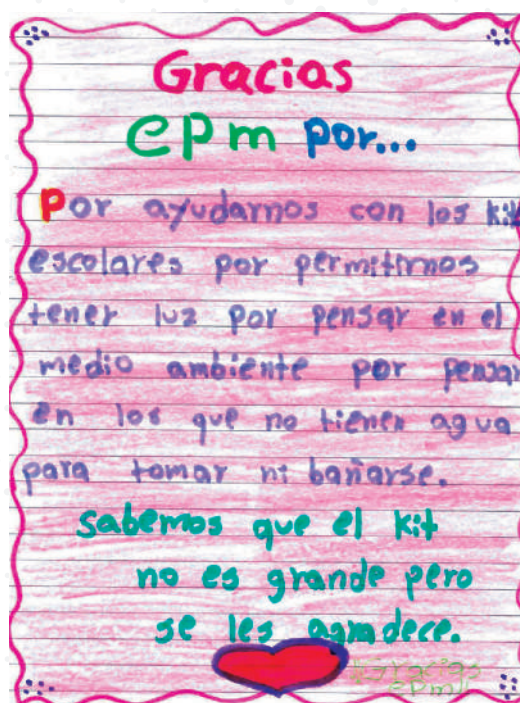 Gracias
epm por...
Por ayudarnos con los kit
escolares por permitirnos
tener luz por pensar en el
medio ambiente por pensar
en los que no tienen agua
para tomar ni bañarse.
sabemos que el kit
no es grande pero
se les agradece.
Gracias
epm